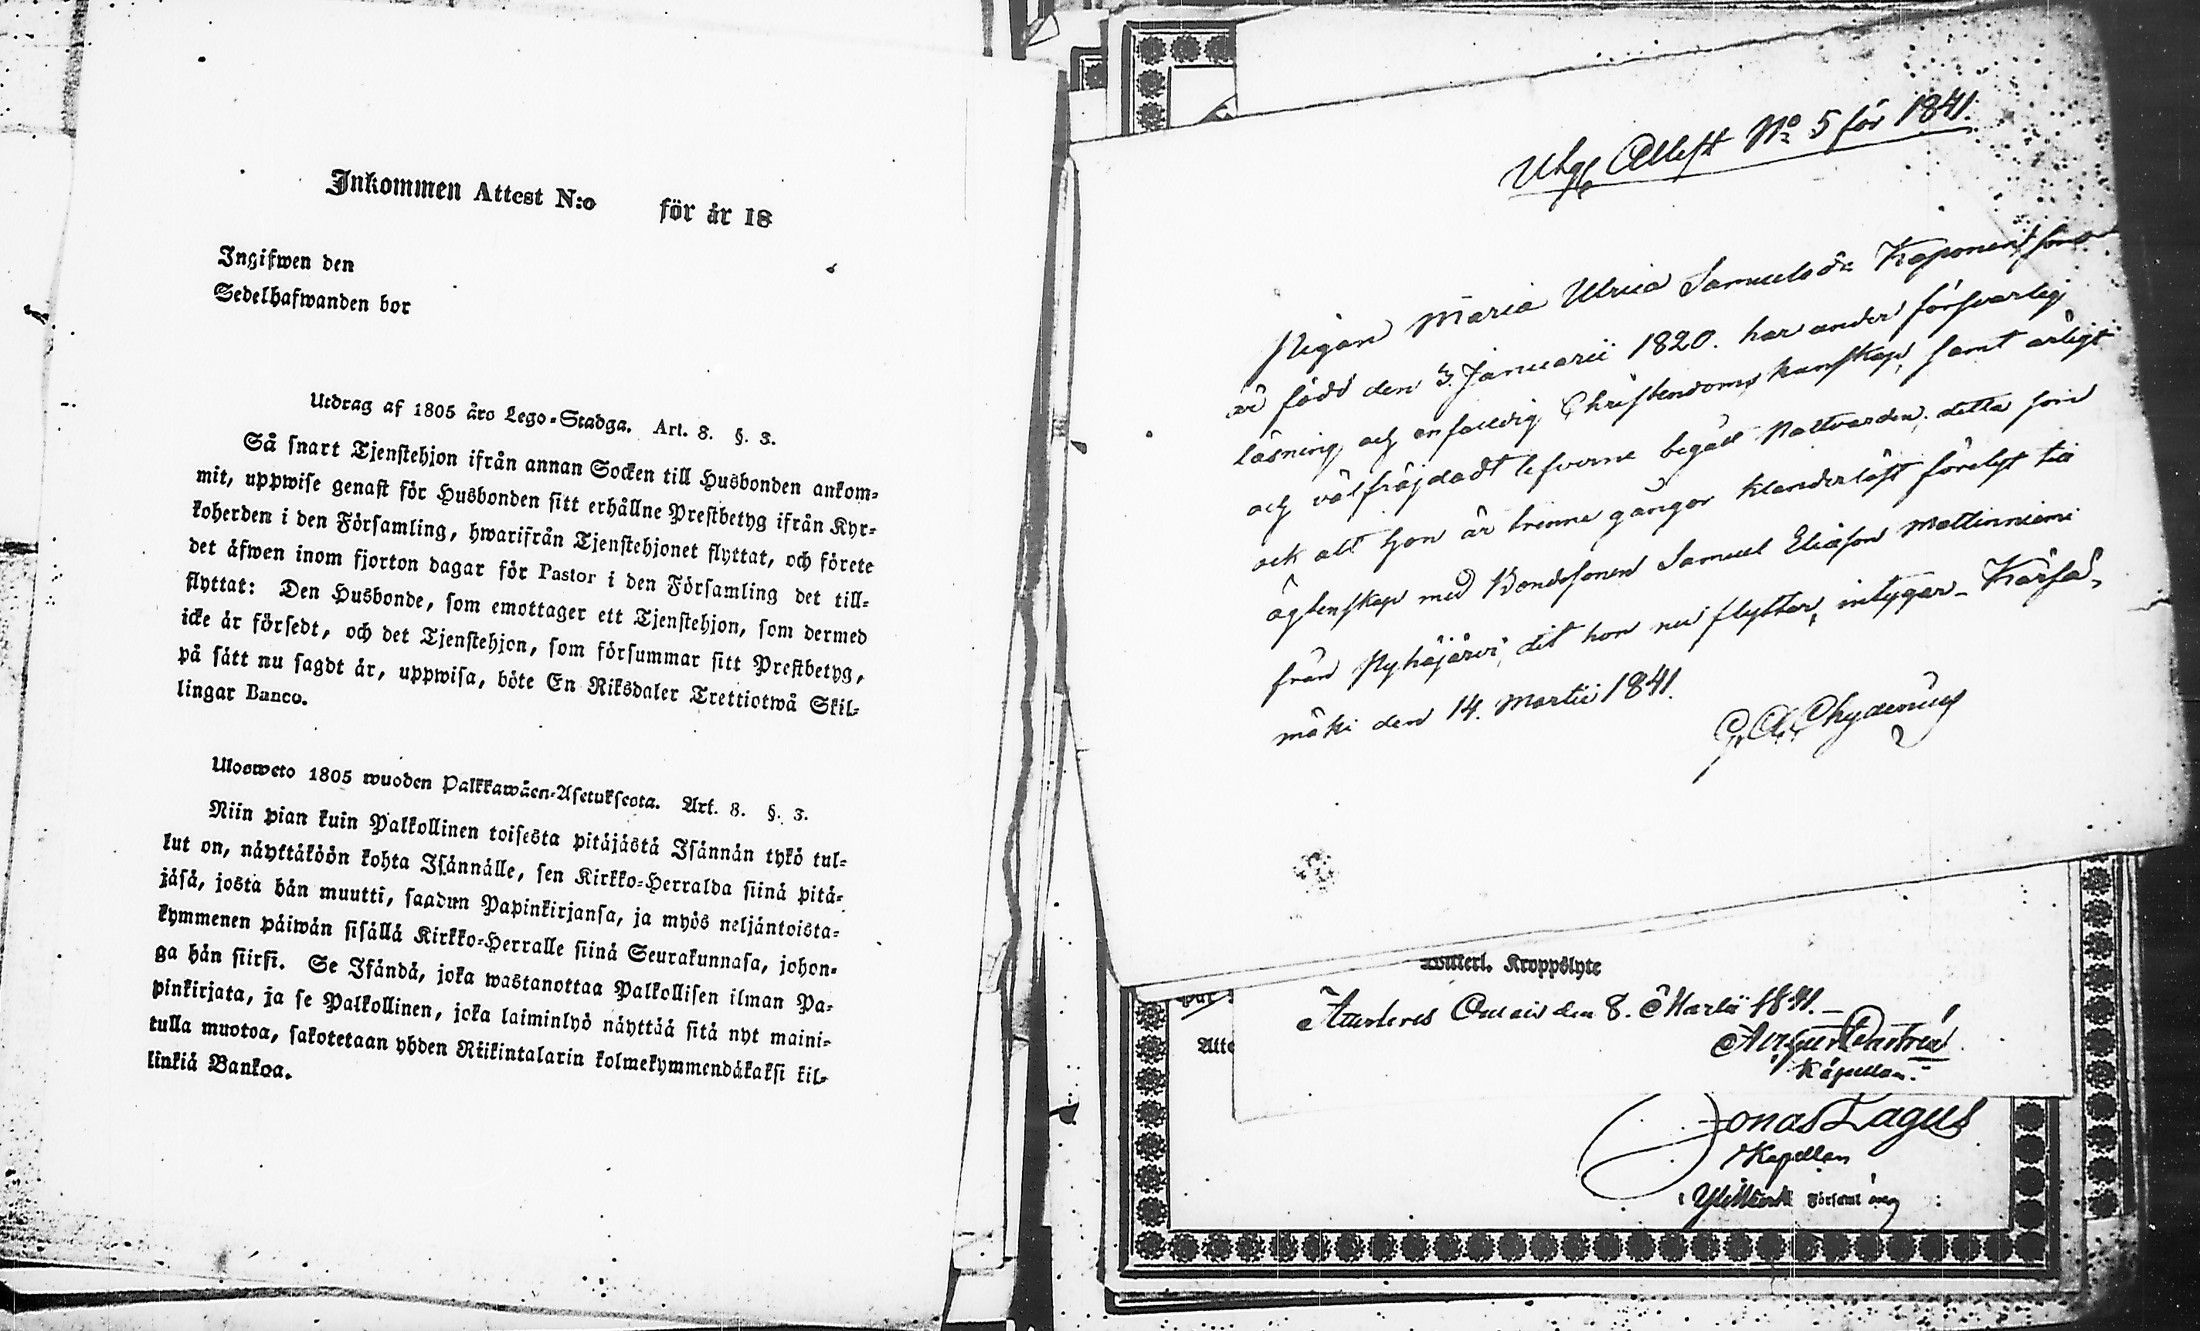 Inkommen Attest N:o för år 18
Ingifwen den
Sedelhafwanden bor
Utdrag af 1805 års Lego-Stadga. Art. 8. §. 3.
Så snart Tjenstehjon ifrån annan Socken till Husbonden ankom-
mit, uppwise genast för Husbonden sitt erhållne Prestbetyg ifrån Kyr-
koherden i den Församling, hwarifrån Tjenstehjonet flyttat, och förete
det äfwen inom fjorton dagar för Pastor i den Församling det till-
flyttat: Den Husbonde, som emottager ett Tjenstehjon, som dermed
icke är försedt, och det Tjenstehjon, som försummar sitt Prestbetyg,
på sätt nu sagdt är, uppwisa, böte En Riksdaler Trettiotwå Skil-
lingar Banco.
Ulosweto 1805 wuoden Palkkawäen-Asetuksesta. Art. 8. §. 3.
Niin pian kuin Palkollinen toisesta pitäjästä Isännän tykö tul-
lut on, näyttäköön kohta Isännälle, sen Kirkko-Herralda siinä pitä-
jäsä, josta hän muutti, saadun Papinkirjansa, ja myös neljäntoista-
kymmenen päiwän sisällä Kirkko-Herralle siinä Seurakunnasa, johon-
ga hän siirsi. Se Isändä, joka wastanottaa Palkollisen ilman Pa-
pinkirjata, ja se Palkollinen, joka laiminlyö näyttää sitä nyt maini-
tulla muotoa, sakotetaan yhden Riikintalarin kolmekymmendäkaksi kil-
linkiä Bankoa.
Utg. Attest No 5 för 1841.
Pigan Maria Ulrica Samuelsdr Kaponen som
är född den 3. Januarii 1820. har under försvarlig
läsning och enfaldig Christendoms kunskap, samt ärligt
och välfräjdadt lefverne begått Nattvarden; detta som
ock att hon är trenne gångor klanderlöst förelyst till
ägtenskap med Bondesonen Samuel Eliasson Mattinniemi
från Pyhäjärvi, dit hon nu flyttar, intygar – Kärsä-
mäki den 14. Martii 1841.
G. A. Chydenius
Witterl. Kroppslyte
den 8. Martii 1841. –
Kapellan.
Atte
Jonas Lagus
Kapellan
i Ylivieska Församling